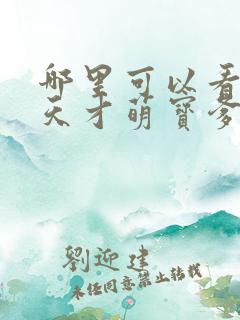 哪里可以看
天才萌寶爹
劉迎建
未经同意禁止转载